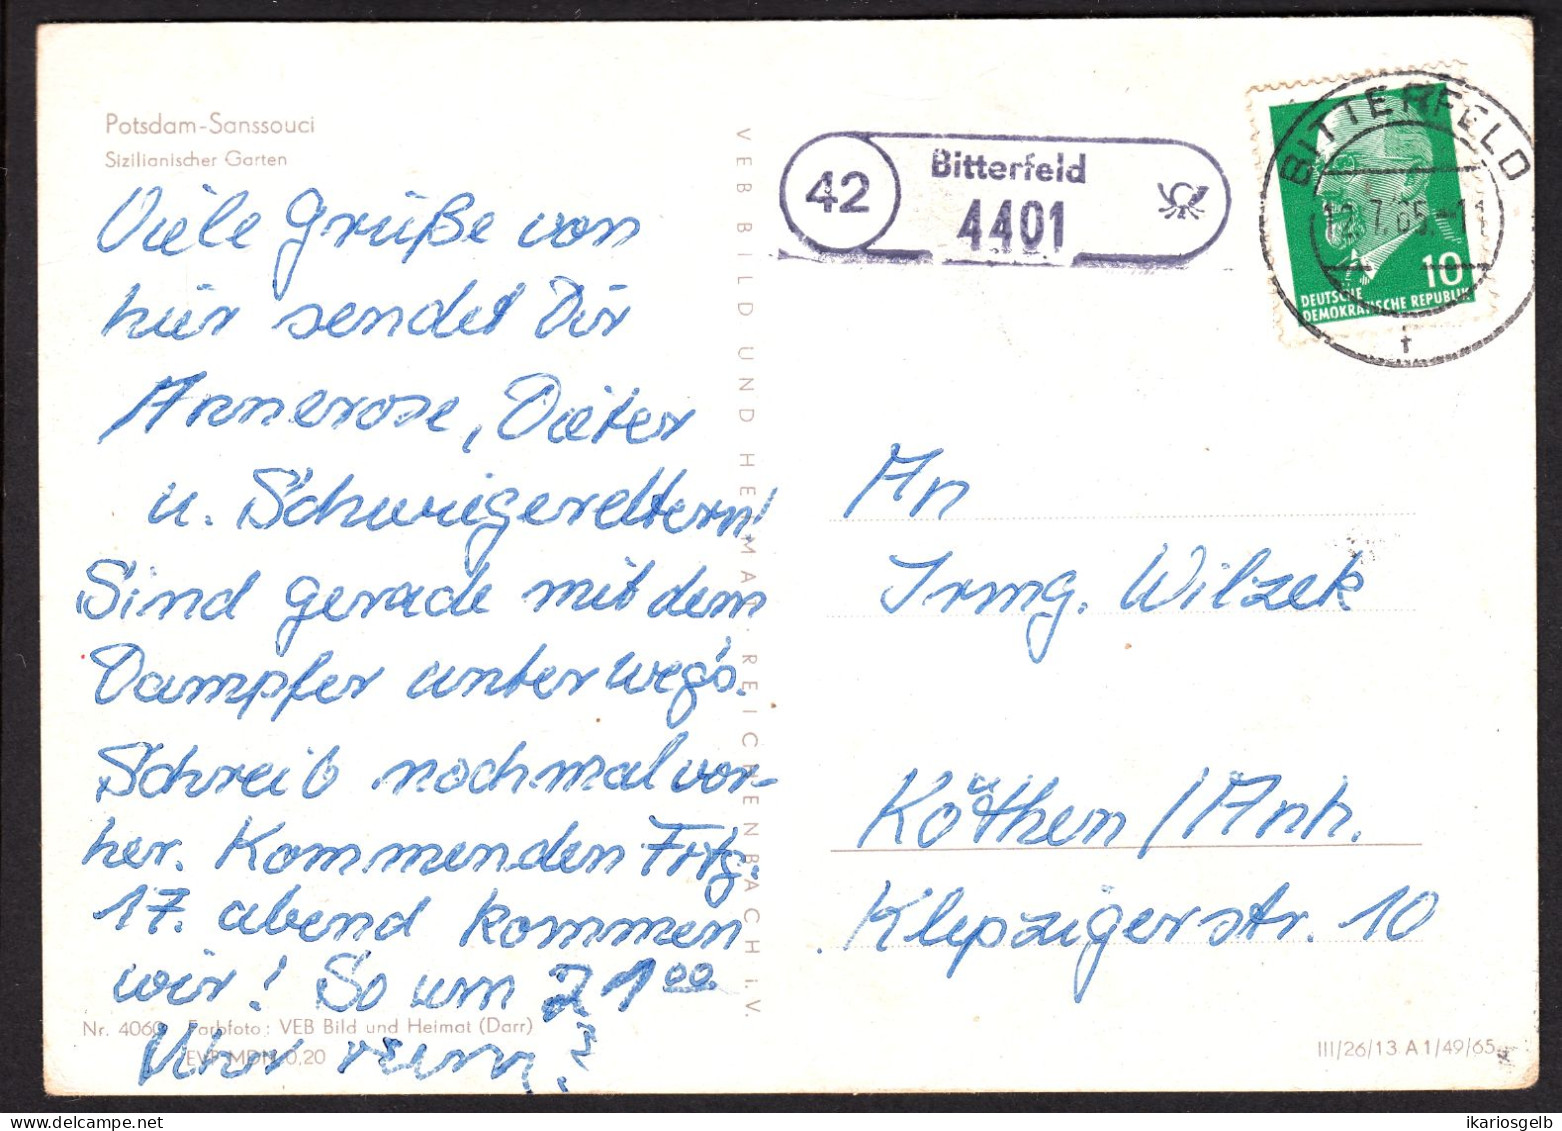 Potsdam-Sanssouci
Sizilianischer Garten
Viele Grüße von
hier sendet Dir
Annerose, Dieter
u. Schwiegereltern!
Sind gerade mit dem
Dampfer unterwegs.
Schreib nochmal vor-
her. Kommenden Frtg.
17. abend kommen
wir! So um 21⁰⁰
Uhr rum?
Nr. 4060 Farbfoto: VEB Bild und Heimat (Darr)
EVP MDN 0,20
VEB BILD UND HEIMAT REICHENBACH i. V.
42
Bitterfeld
4401
BITTERFELD
12.7.65.-11
f
10
DEUTSCHE
DEMOKRATISCHE REPUBLIK
An
Irmg. Wilzek
Köthen/Anh.
Klepzigerstr. 10
III/26/13 A 1/49/65
ikariosgelb